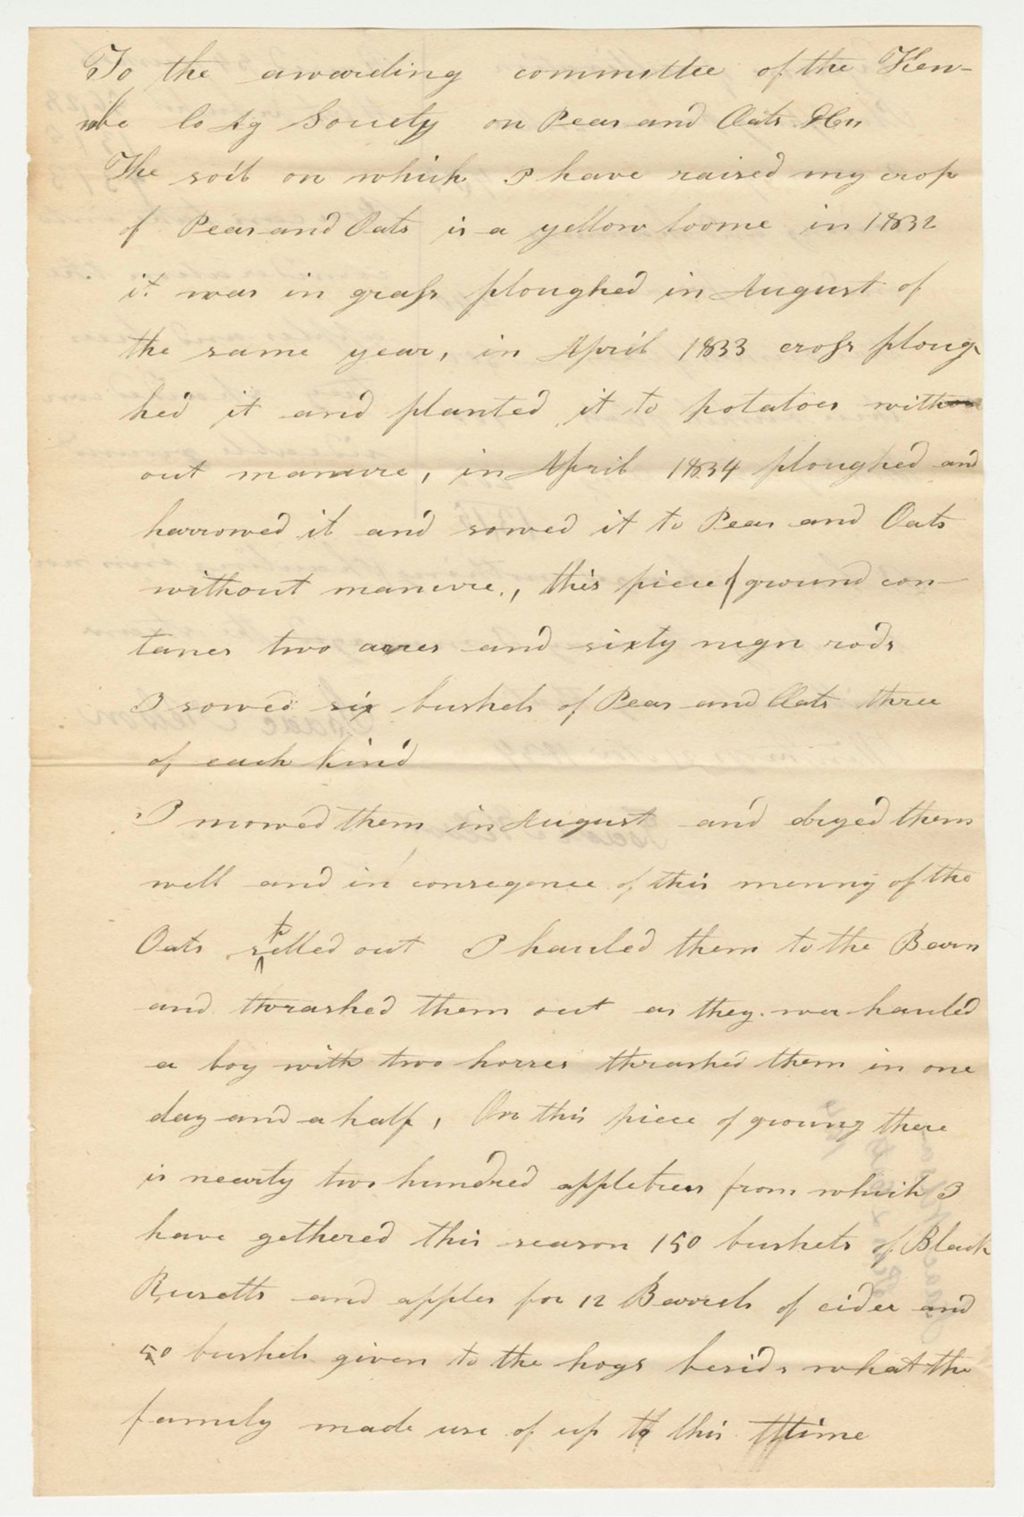 To the awarding committee of the Ken-
nebe Co Ag Society on Peas and Oats &c
The soil on which I have raised my crop
of Peas and Oats is a yellow loome in 1832
it was in grass ploughed in August of
the same year, in April 1833 cross ploug
hed it and planted it to potatoes with
out manure, in April 1834 ploughed and
harrowed it and sowed it to Peas and Oats
without manure, this piece ground con-
tanes two acres and sixty nign rods
I sowed six bushels of Peas and Oats three
of each kind
I mowed them in August and dryed them
well and in conseqence of this menny of the
Oats shelled out I hauled them to the Barn
and thrashed them out as they wer hauled
a boy with two horses thrashed them in one
day and a half, On this piece of groung there
is nearly two hundred appletrees from which I
have gethered this season 150 bushels of Black
Rusetts and apples for 12 Barrels of eider and
50 bushels given to the hogs besids what the
family made use of up to this time